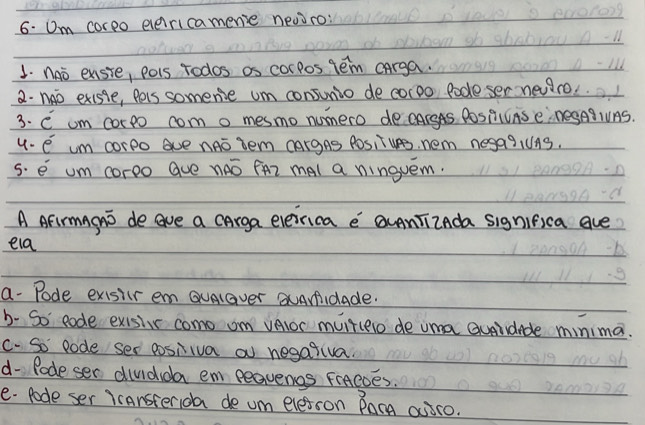 6- Um corpo eletricamente neutro:
1. não existe, pois todos os corpos têm carga.
2- não existe, pois somente um conjunto de corpo pode ser neutro.
3- é um corpo com o mesmo número de cargas positivas e negativas.
4- é um corpo que não tem cargas positivas nem negativas.
5. é um corpo que não faz mal a ninguém.
A afirmação de que a carga eletrica é quantizada significa que
ela
a- Pode existir em qualquer quantidade.
b- Só pode existir como um valor múltiplo de uma quantidade mínima.
c- Só pode ser positiva ou negativa.
d- Pode ser dividida em pequenas frações.
e- Pode ser transferida de um eletron para outro.